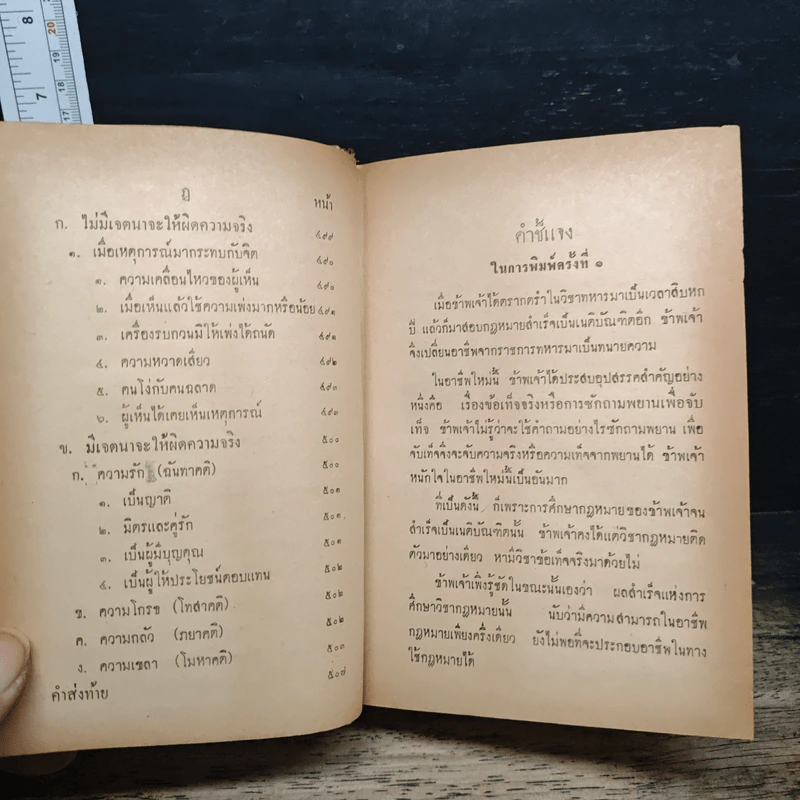 8
7
20
19
18
17
ฎ
หน้า
ก. ไม่มีเจตนาจะให้ผิดความจริง ๔๙๙
๑. เมื่อเหตุการณ์มากระทบกับจิต ๔๙๐
๑. ความเคลื่อนไหวของผู้เห็น ๔๙๐
๒. เมื่อเห็นแล้วใช้ความเพ่งมากหรือน้อย ๔๙๑
๓. เครื่องรบกวนมิให้เพ่งได้ถนัด ๔๙๑
๔. ความหวาดเสียว ๔๙๒
๕. คนโง่กับคนฉลาด ๔๙๓
๖. ผู้เห็นได้เคยเห็นเหตุการณ์ ๔๙๓
ข. มีเจตนาจะให้ผิดความจริง ๕๐๐
ก. ความรัก (ฉันทาคติ) ๕๐๐
๑. เป็นญาติ ๕๐๑
๒. มิตรและคู่รัก ๕๐๑
๓. เป็นผู้มีบุญคุณ ๕๐๑
๔. เป็นผู้ให้ประโยชน์ตอบแทน ๕๐๒
ข. ความโกรธ (โทสาคติ) ๕๐๒
ค. ความกลัว (ภยาคติ) ๕๐๓
ง. ความเขลา (โมหาคติ)
คำส่งท้าย ๕๐๗
คำชี้แจง
ในการพิมพ์ครั้งที่ ๑
เมื่อข้าพเจ้าได้ตรากตรำในวิชาทหารมาเป็นเวลาสิบหก
ปี แล้วก็มาสอบกฎหมายสำเร็จเป็นเนติบัณฑิตอีก ข้าพเจ้า
จึงเปลี่ยนอาชีพจากราชการทหารมาเป็นทนายความ
ในอาชีพใหม่นี้ ข้าพเจ้าได้ประสบอุปสรรคสำคัญอย่าง
หนึ่งคือ เรื่องข้อเท็จจริงหรือการซักถามพยานเพื่อจับ
เท็จ ข้าพเจ้าไม่รู้ว่าจะใช้คำถามอย่างไรซักถามพยาน เพื่อ
จับเท็จจึงจะจับความจริงหรือความเท็จจากพยานได้ ข้าพเจ้า
หนักใจในอาชีพใหม่นี้เป็นอันมาก
ที่เป็นดังนี้ ก็เพราะการศึกษากฎหมายของข้าพเจ้าจน
สำเร็จเป็นเนติบัณฑิตนั้น ข้าพเจ้าคงได้แต่วิชากฎหมายติด
ตัวมาอย่างเดียว หามีวิชาข้อเท็จจริงมาด้วยไม่
ข้าพเจ้าเพิ่งรู้ชัดในขณะนั้นเองว่า ผลสำเร็จแห่งการ
ศึกษาวิชากฎหมายนั้น นับว่ามีความสามารถในอาชีพ
กฎหมายเพียงครึ่งเดียว ยังไม่พอที่จะประกอบอาชีพในทาง
ใช้กฎหมายได้